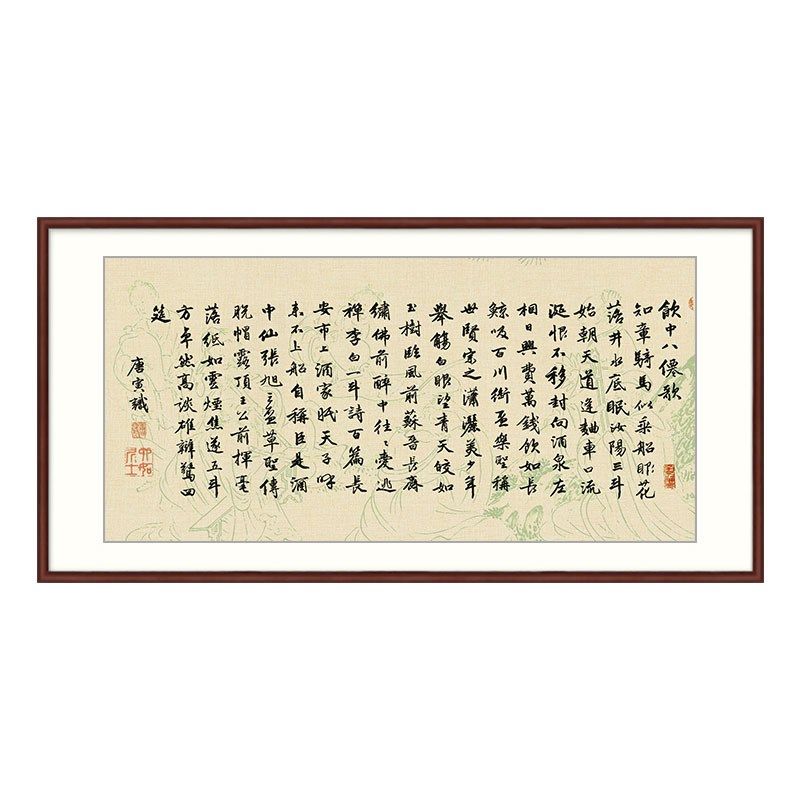 飲中八僊歌
知章騎馬似乘船眼花
落井水底眠汝陽三斗
始朝天道逢麯車口流
涎恨不移封向酒泉左
相日興費萬錢飲如長
鯨吸百川銜盃樂聖稱
世賢宗之瀟灑美少年
舉觴白眼望青天皎如
玉樹臨風前蘇晉長齋
繡佛前醉中往〻愛逃
禅李白一斗詩百篇長
安市上酒家眠天子呼
來不上船自稱臣是酒
中仙張旭三盃草聖傳
脫帽露頂王公前揮毫
落紙如雲煙焦遂五斗
方卓然高談雄辯驚四
筵
唐寅
六如居士